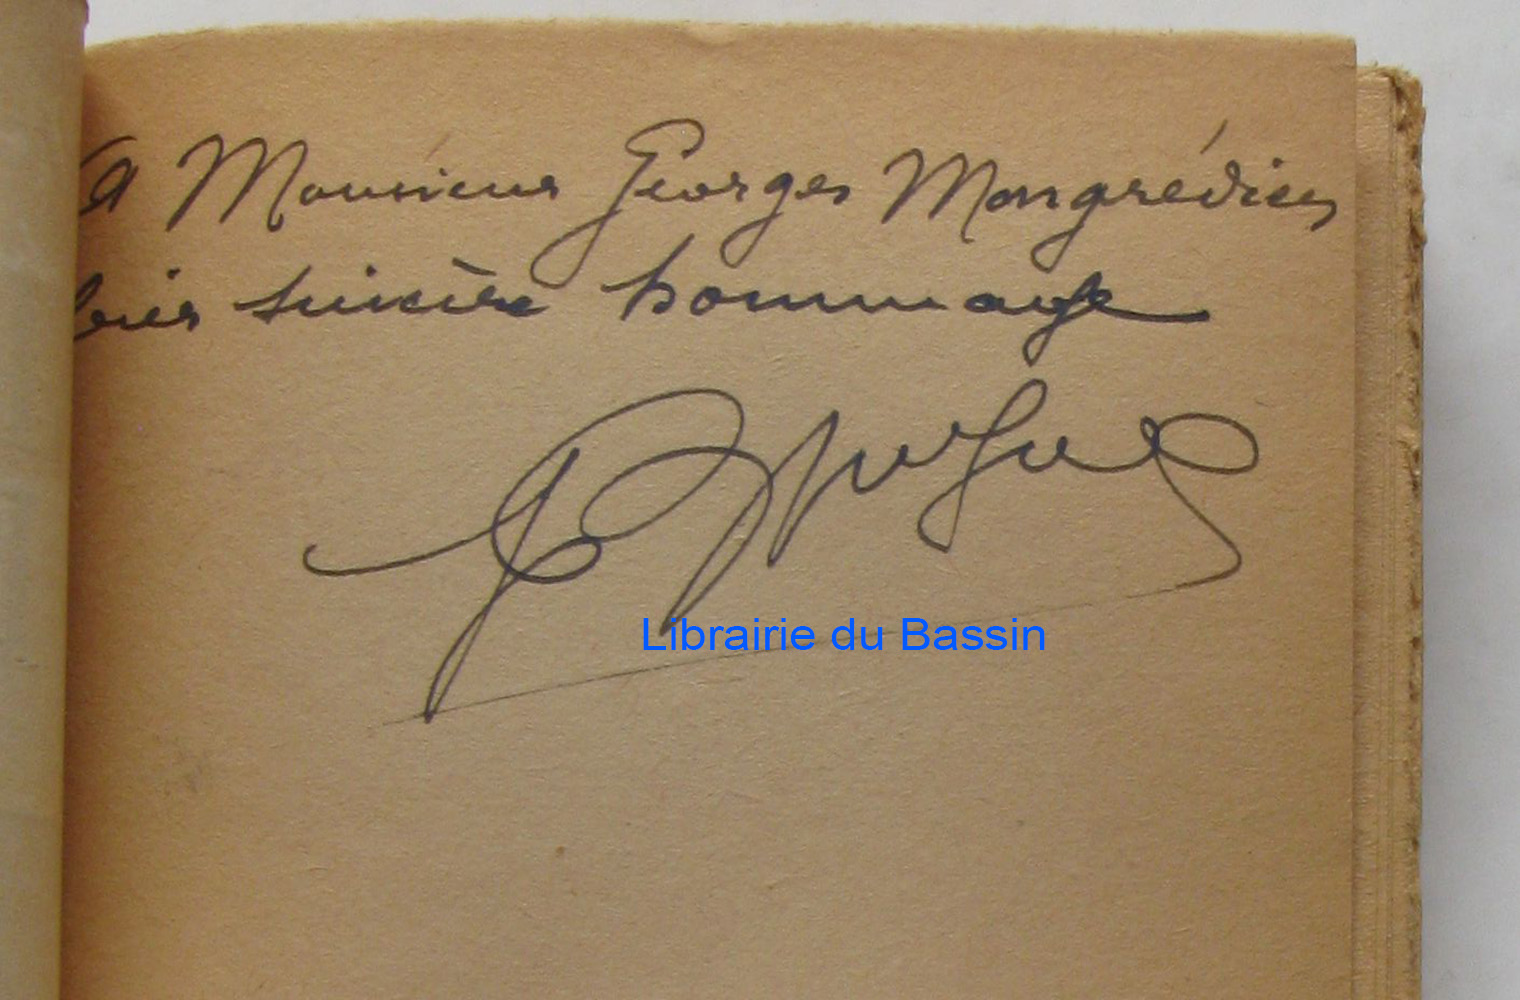 A Monsieur Georges Mongrédien
bien sincère hommage
Librairie du Bassin